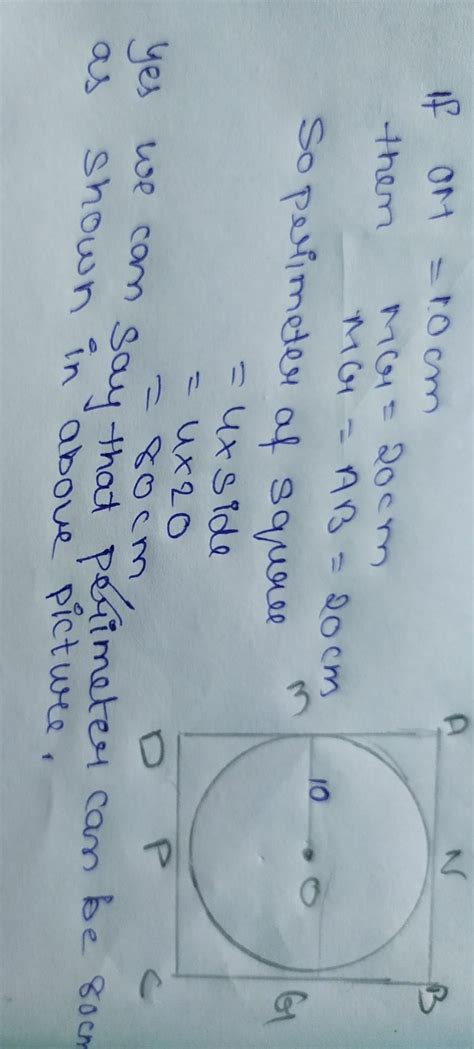 If OM = 10cm
then MG = 20cm
MG = AB = 20cm
So perimeter of square
= 4×side
= 4×20
= 80cm
yes we can say that perimeter can be 80cm
as shown in above picture.
A
N
B
M
10
O
G
D
P
C